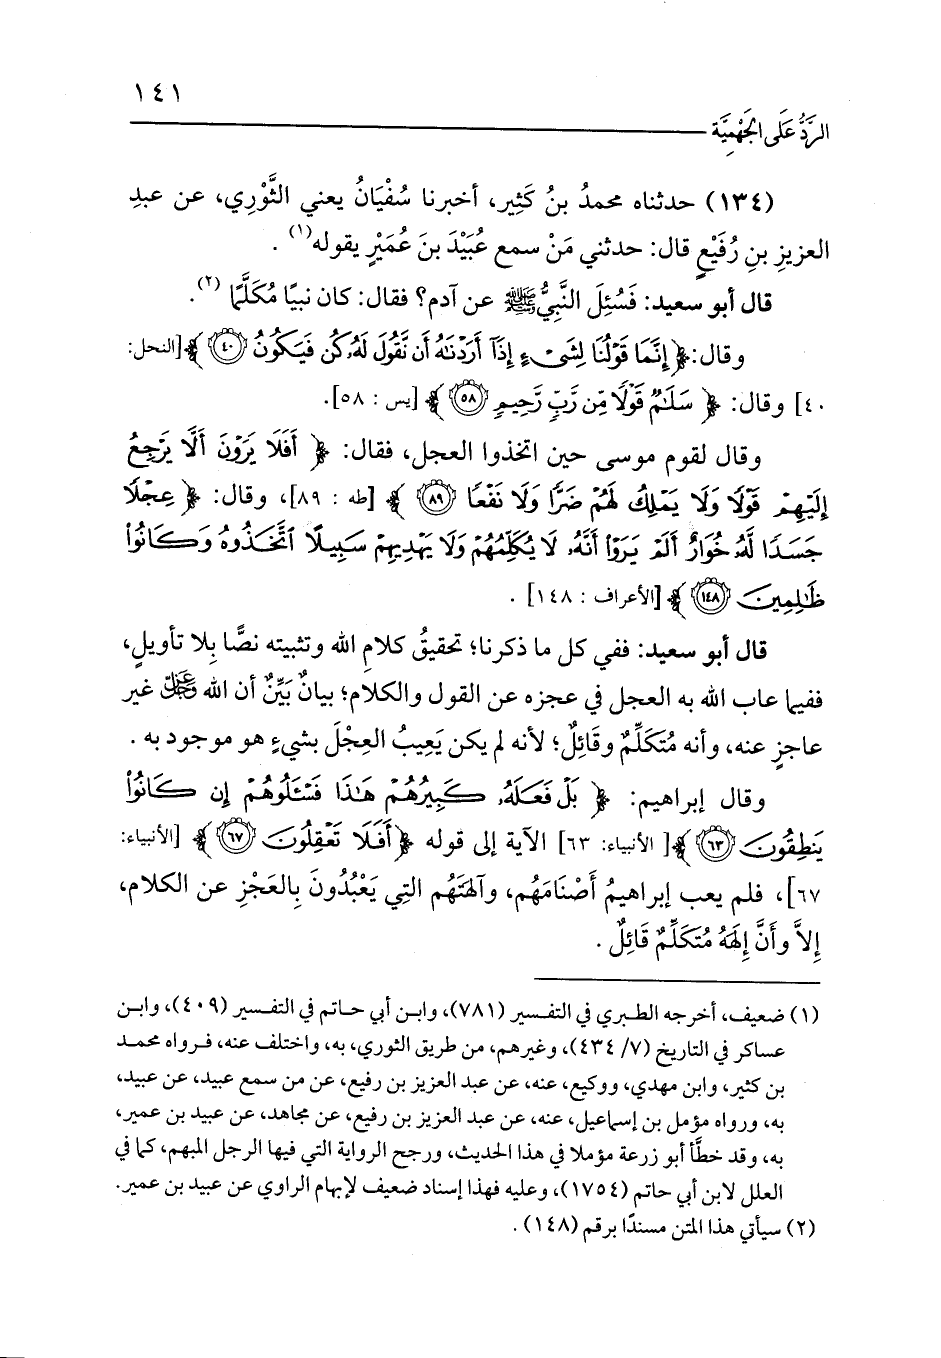 ١٤١
الرَّدُّ عَلَى الجَهْمِيَّة
(١٣٤) حدثناه محمدُ بنُ كَثِير، أخبرنا سُفْيَانُ يعني الثَّوْرِي، عن عبدِ
العزيزِ بنِ رُفَيْعٍ قال: حدثني مَنْ سمع عُبَيْدَ بنَ عُمَيْرٍ يقوله(١) .
قال أبو سعيد: فَسُئِلَ النَّبِيُّ ﷺ عن آدم؟ فقال: كان نبيًا مُكَلَّمًا (٢).
وقال: ﴿ إِنَّمَا قَوْلُنَا لِشَىْءٍ إِذَآ أَرَدْنَٰهُ أَن نَّقُولَ لَهُۥ كُن فَيَكُونُ ٤٠ ﴾ [النحل:
٤٠] وقال: ﴿ سَلَٰمٌ قَوْلًا مِّن رَّبٍّ رَّحِيمٍ ٥٨ ﴾ [يس : ٥٨].
وقال لقوم موسى حين اتخذوا العجل، فقال: ﴿ أَفَلَا يَرَوْنَ أَلَّا يَرْجِعُ
إِلَيْهِمْ قَوْلًا وَلَا يَمْلِكُ لَهُمْ ضَرًّا وَلَا نَفْعًا ٨٩ ﴾ [طه : ٨٩]، وقال: ﴿ عِجْلًا
جَسَدًا لَّهُۥ خُوَارٌ أَلَمْ يَرَوْا۟ أَنَّهُۥ لَا يُكَلِّمُهُمْ وَلَا يَهْدِيهِمْ سَبِيلًا ٱتَّخَذُوهُ وَكَانُوا۟
ظَٰلِمِينَ ١٤٨ ﴾ [الأعراف : ١٤٨] .
قال أبو سعيد: ففي كل ما ذكرنا؛ تحقيقُ كلامِ الله وتثبيته نصًّا بِلا تأويلٍ،
ففيما عاب الله به العجل في عجزه عن القول والكلام؛ بيانٌ بَيِّنٌ أن الله ﷿ غير
عاجزٍ عنه، وأنه مُتَكَلِّمٌ وقَائِلٌ؛ لأنه لم يكن يَعِيبُ العِجْلَ بشيءٍ هو موجود به .
وقال إبراهيم: ﴿ بَلْ فَعَلَهُۥ كَبِيرُهُمْ هَٰذَا فَسْـَٔلُوهُمْ إِن كَانُوا۟
يَنطِقُونَ ٦٣ ﴾[ الأنبياء: ٦٣] الآية إلى قوله ﴿ أَفَلَا تَعْقِلُونَ ٦٧ ﴾ [الأنبياء:
٦٧]، فلم يعب إبراهيمُ أَصْنَامَهُم، وآلهتَهُم التِي يَعْبُدُونَ بِالعَجْزِ عن الكلام،
إِلاَّ وأَنَّ إِلَهَهُ مُتَكَلِّمٌ قَائِلٌ .
(١) ضعيف، أخرجه الطبري في التفسير (٧٨١)، وابن أبي حاتم في التفسير (٤٠٩)، وابن
عساكر في التاريخ (٧/ ٤٣٤)، وغيرهم، من طريق الثوري، به، واختلف عنه، فرواه محمد
بن كثير، وابن مهدي، ووكيع، عنه، عن عبد العزيز بن رفيع، عن من سمع عبيد، عن عبيد،
به، ورواه مؤمل بن إسماعيل، عنه، عن عبد العزيز بن رفيع، عن مجاهد، عن عبيد بن عمير،
به، وقد خطَّأ أبو زرعة مؤملا في هذا الحديث، ورجح الرواية التي فيها الرجل المبهم، كما في
العلل لابن أبي حاتم (١٧٥٤)، وعليه فهذا إسناد ضعيف لإبهام الراوي عن عبيد بن عمير.
(٢) سيأتي هذا المتن مسندًا برقم (١٤٨) .